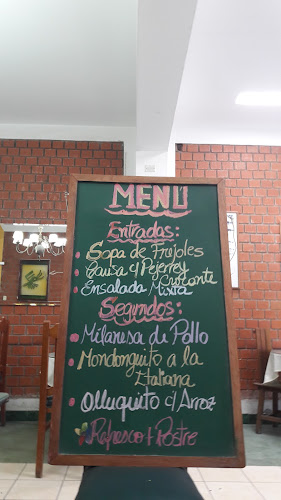 MENÚ
Entradas:
Sopa de Frejoles
Causa c/ Pejerrey
Crocante
Ensalada Mixta
Segundos:
Milanesa de Pollo
Mondonguito a la
Italiana
Olluquito c/ Arroz
Refresco + Postre